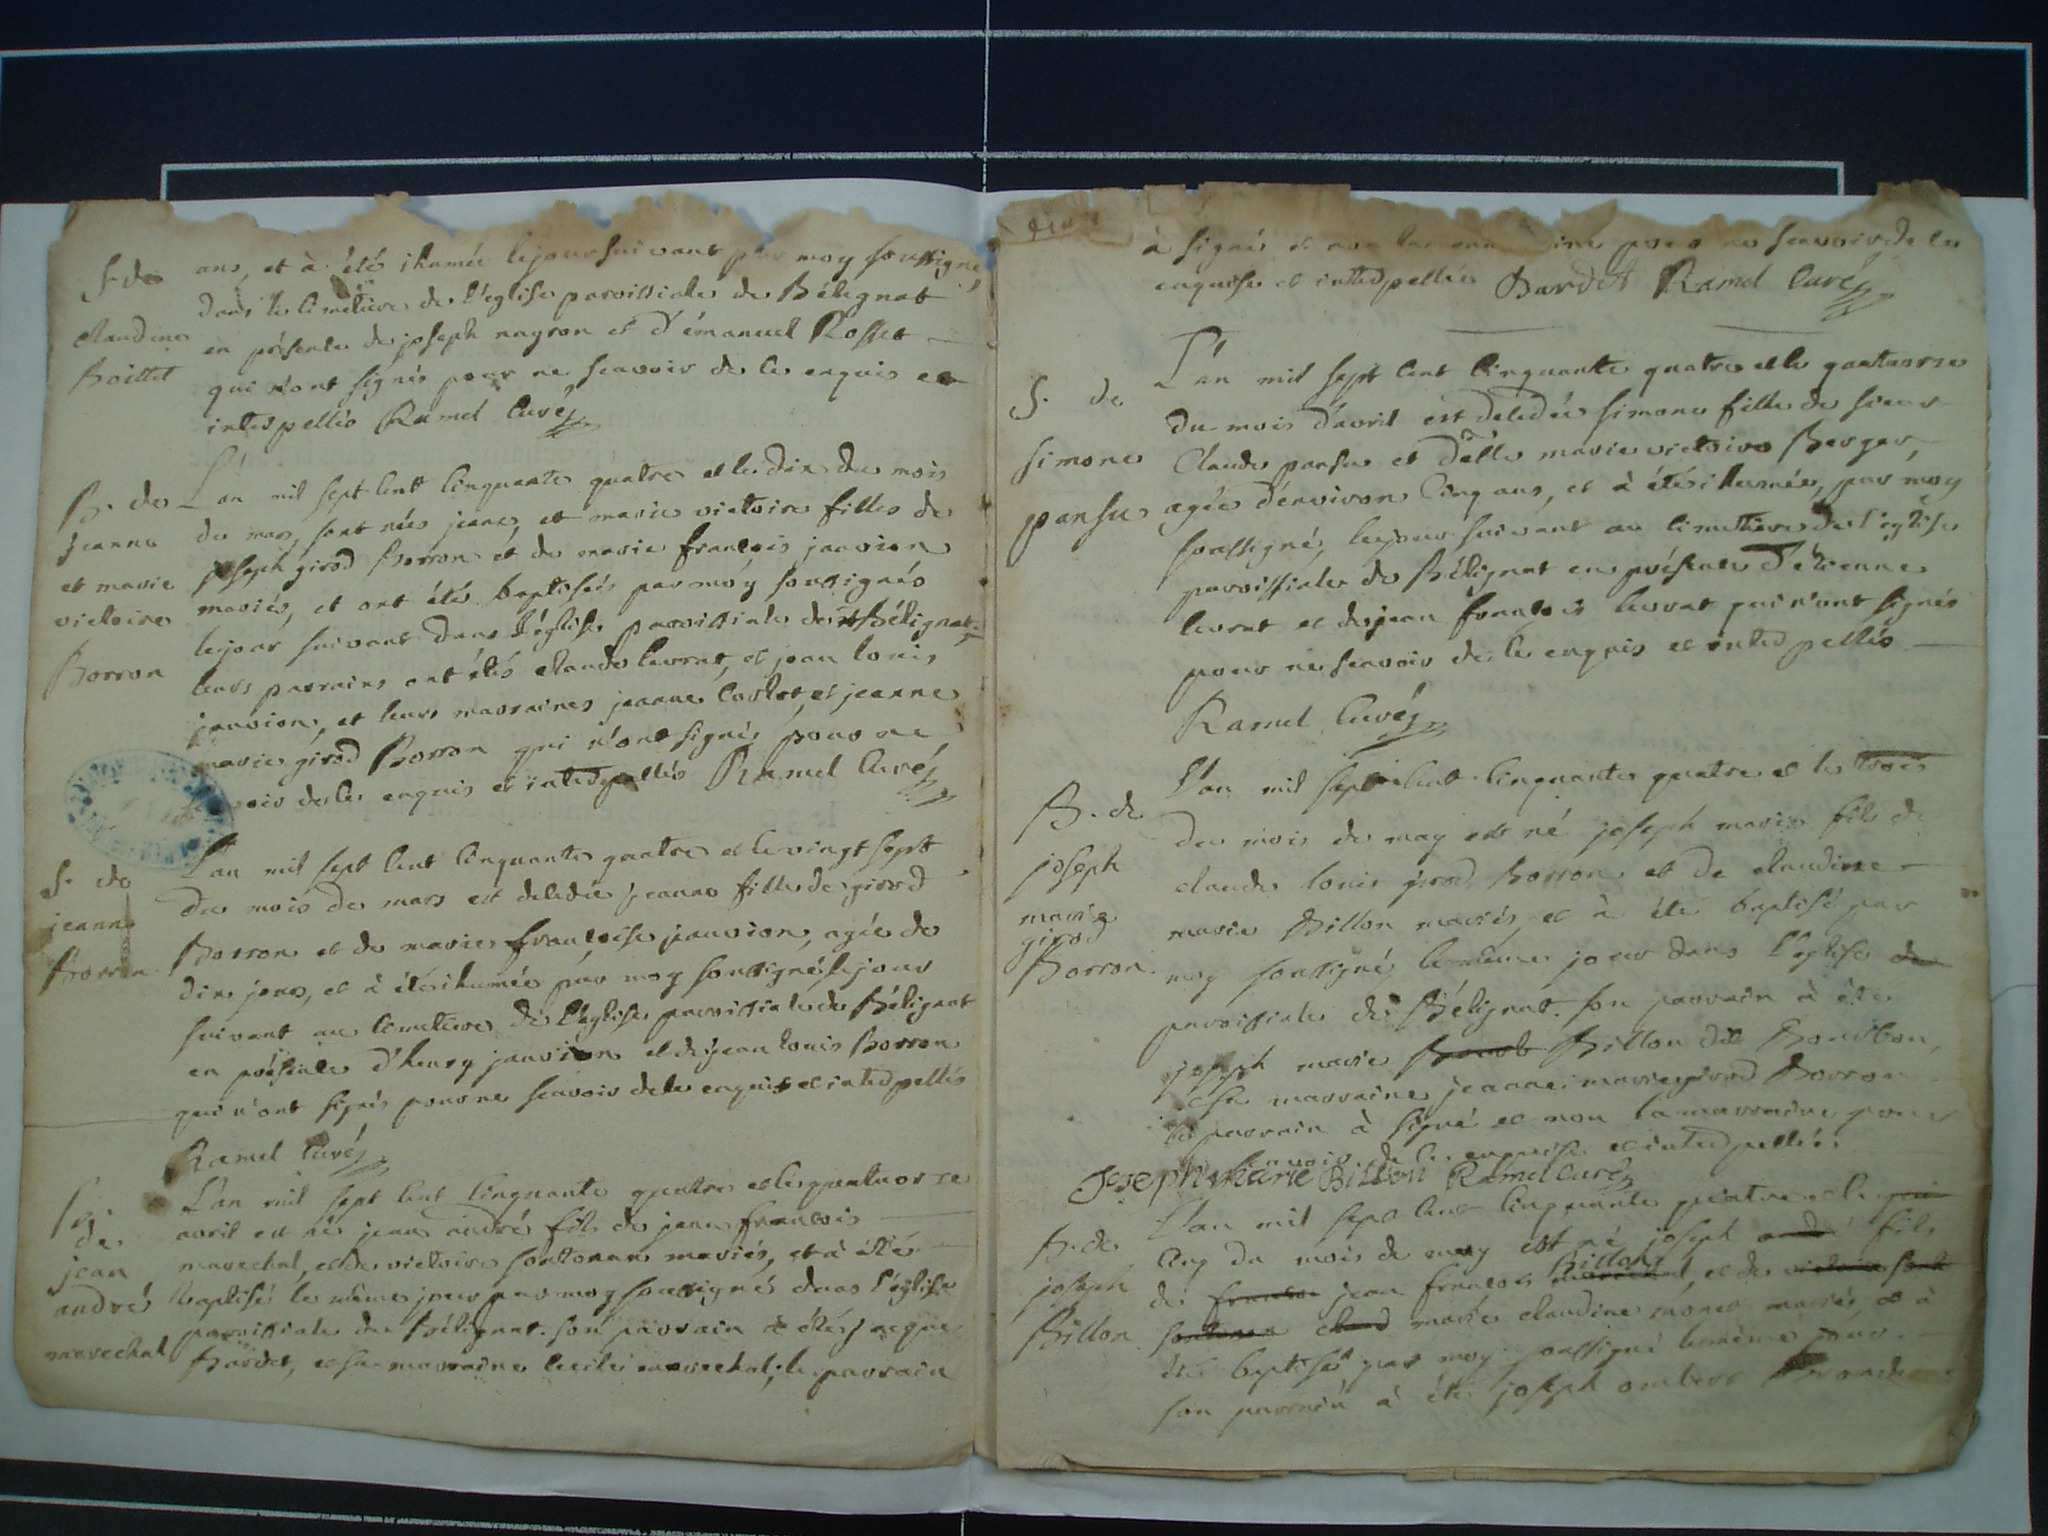 S. de
claudine
Boittet
ans, et à été ihumée lejour suivant par moy soussigné,
dans le cimetiere de l'eglise paroissiale de Bélignat
en présence de joseph nayron et d'émanuel Rosset
qui n'ont signés pour ne scavoir de ce enquis et
interpellés Ramel Curé
B. de
jeanne
et marie
victoire
Borron
L'an mil sept cent cinquante quatre et le dix du mois
de mars, sont nées jeane, et marie victoire filles de
joseph girod Borron et de marie francois jauvion
mariés, et ont étés baptisées par moy soussignés
lejour suivant dans l'église paroissiale de Bélignat,
leurs parrains ont étés claude levrat, et jean louis
jauvion, et leurs marraines jeanne Carlot, et jeanne
marie girod Borron qui n'ont signés pour ne
de ce enquis et interpellés Ramel Curé
S. de
jeanne
Borron
L'an mil sept cent cinquante quatre et le vingt sept
du mois de mars est decedée jeanne fille de girod
Borron et de marie francoise jauvion, agée de
dix jours, et à été ihumée par moy soussigné lejour
suivant au cemetiere de l'eglise paroissiale de Bélignat
en présence d'henry jauvion et de jean louis Borron
qui n'ont signés pour ne scavoir de ce enquis et interpellés
Ramel Curé
B.
de
jean
andré
marechal
L'an mil sept cent cinquante quatre et le quatuorze
avril est né jean andré fils de jean francois
marechal, et de victoire sontonax mariés, et à été
baptisé le même jour par moy soussigné dans l'église
paroissiale de Bélignat. son parrain à été jacque
Bardet, et sa marraine cecile marechal; le parrain
à signé et non la pour ne scavoir de ce
enquise et interpellée Bardet Ramel Curé
S. de
simone
pansu
L'an mil sept cent cinquante quatre et le quatuorze
du mois d'avril est decedée simone fille de sieur
Claude pansu et delle marie victoire Berger
agée d'environ cinq ans, et à été ihumée, par moy
soussigné, lejour suivant au cimettiere de l'église
paroissiale de Bélignat en présence d'etienne
levrat et de jean francois levrat qui n'ont signés
pour ne scavoir de ce enquis et interpellés
Ramel Curé
B. de
joseph
marie
girod
Borron
L'an mil sept cent cinquante quatre et le trois
du mois de may est né joseph marie fils de
claude louis girod Borron et de claudine
marie Billon mariés, et à été baptisé par
moy soussigné, le même jour dans l'église de
paroissiale de Bélignat. son parrain à été
joseph marie Billon dit Bourbon,
et sa marraine jeanne marie girod Borron
le parrain à signé et non la marraine pour
de ce enquise et interpellée.
Joseph marie Billon Ramel Curé
B. de
joseph
Billon
L'an mil sept cent cinquante quatre et le
cinq du mois de may est né joseph fils
Billon
de jean francois marechal, et de victoire sont
sontonax claud marie claudine monet mariés, et à
été baptisé par moy soussigné lemême jour.
son parrain à été joseph